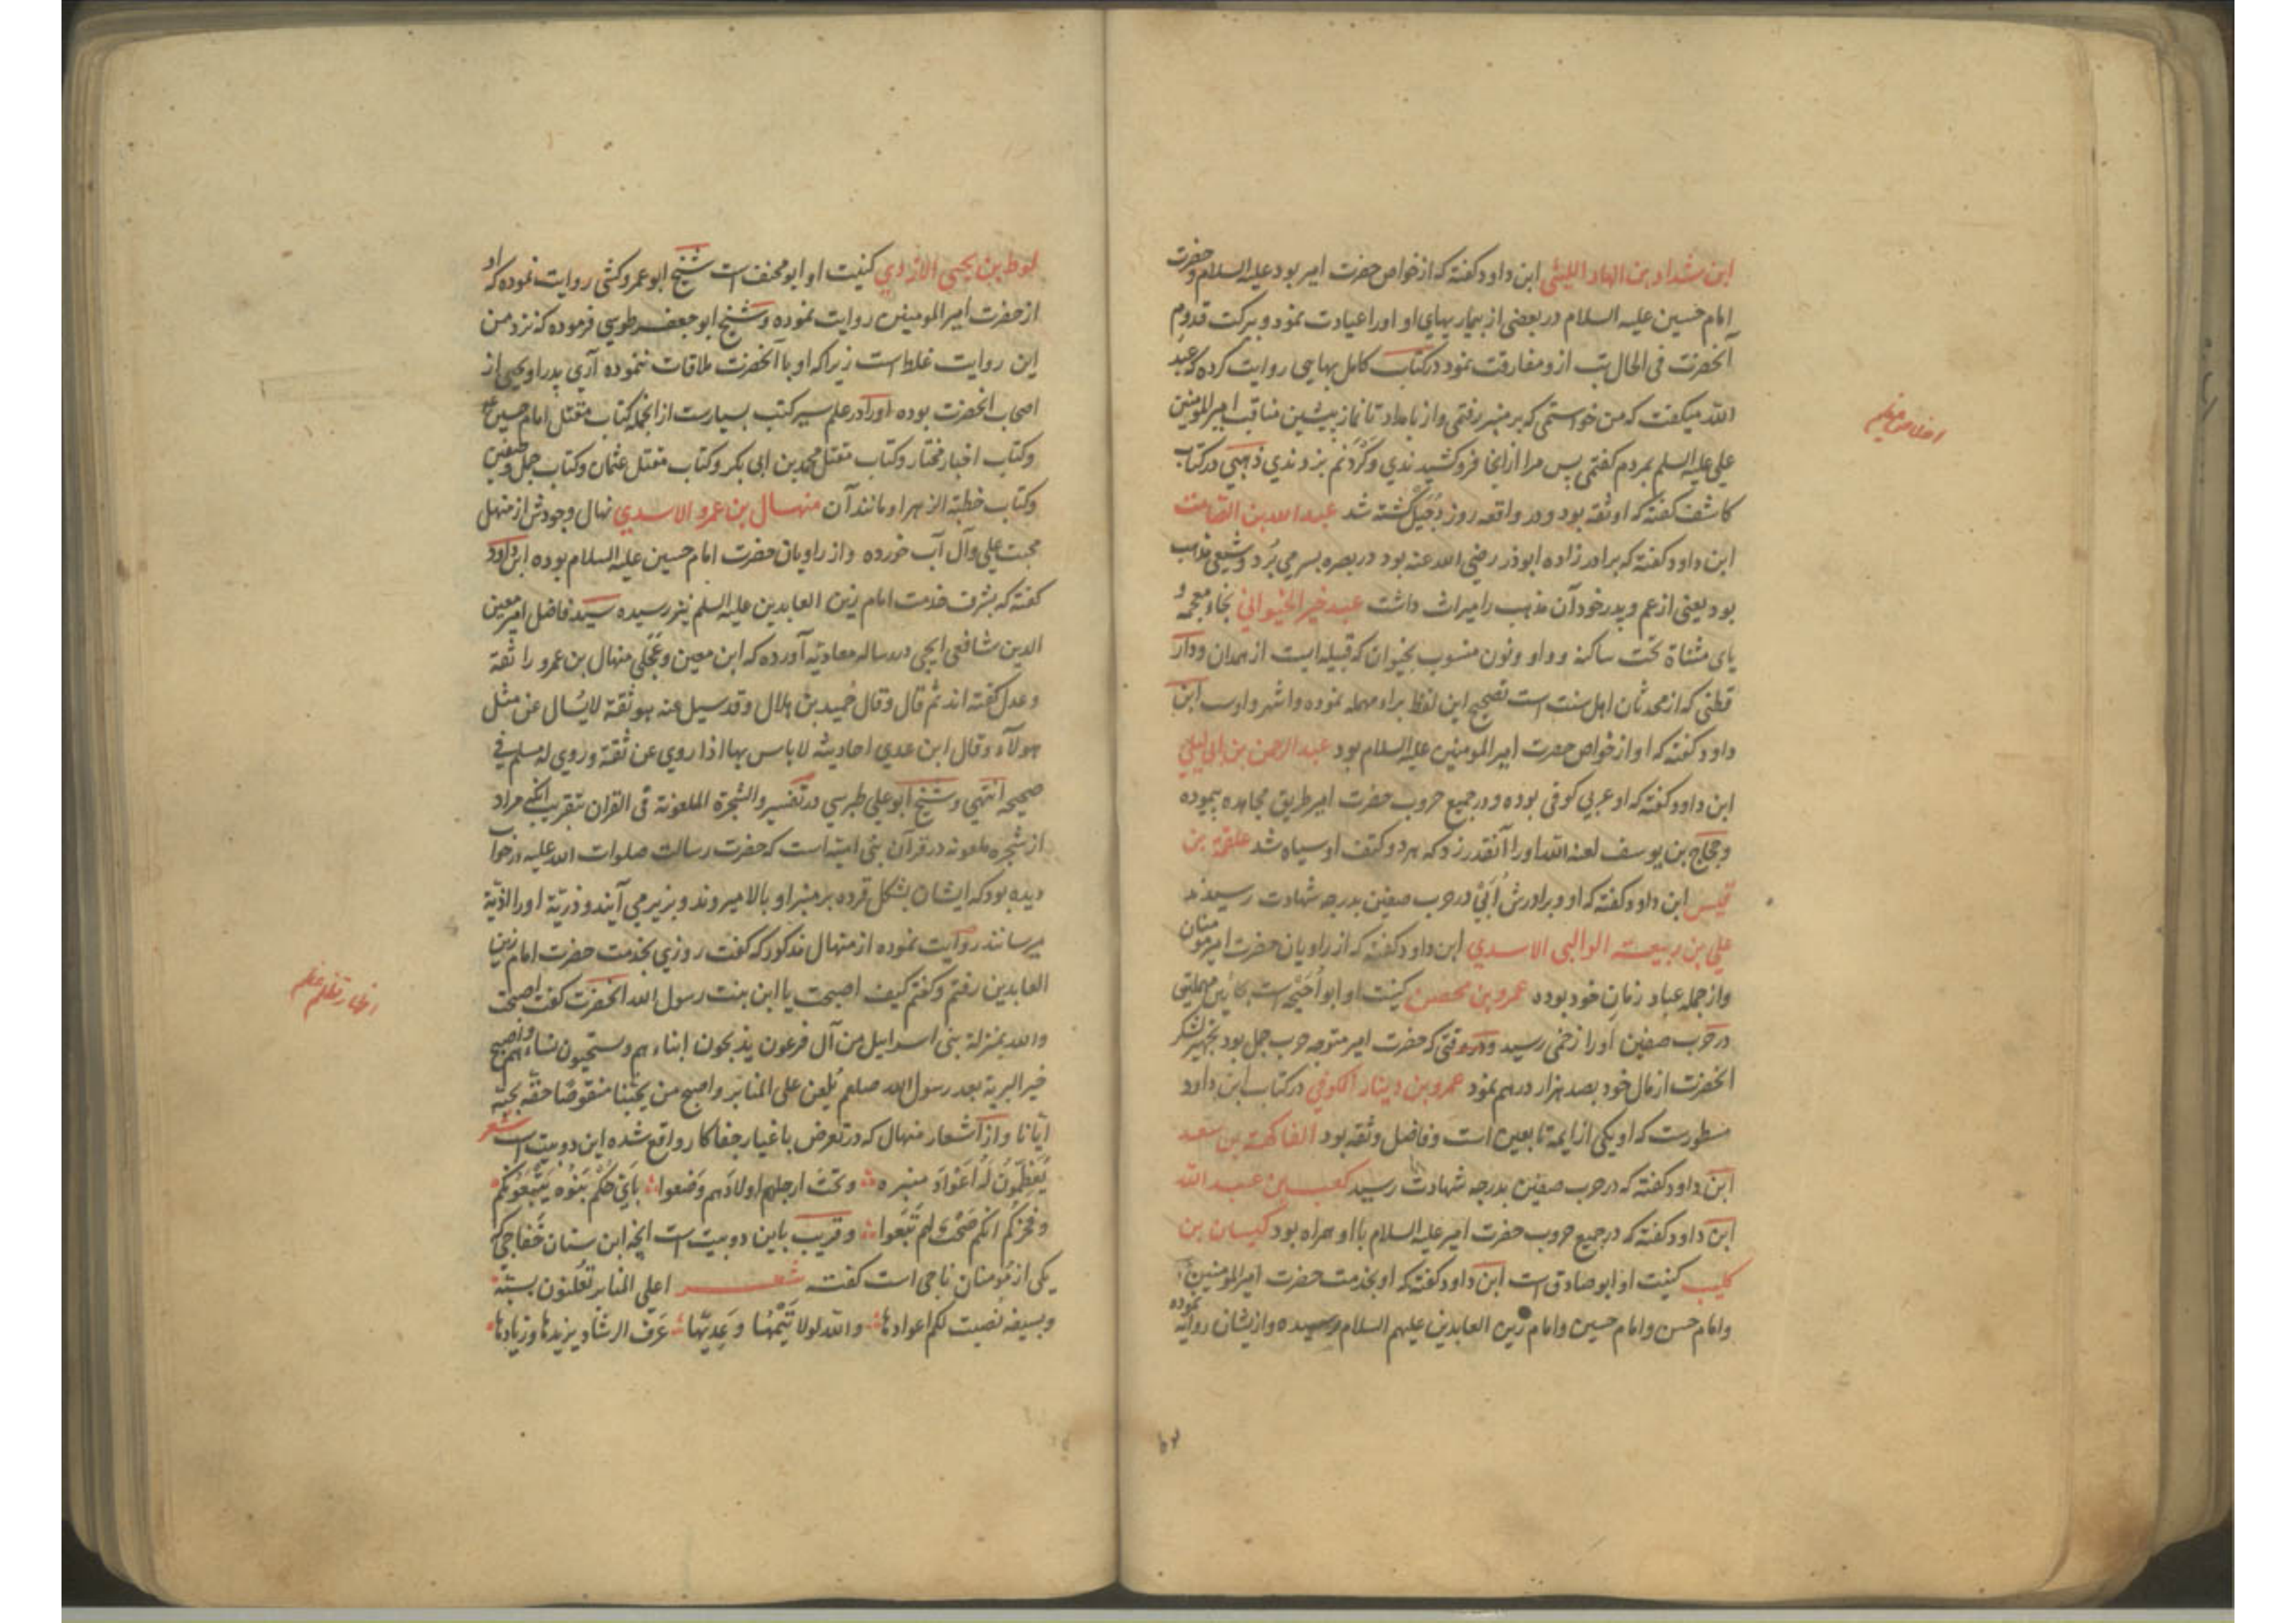 ابن شداد بن الهاد اللیثی ابن داود کفته که از خواص حضرت امیر بود علیه السلام و حضرت
امام حسین علیه السلام در بعضی از بیماریهای او اورا عیادت نمود و ببرکت قدوم
آنحضرت فی الحال تب ازو مفارقت نمود در کتاب کامل بهایی روایت کرده که عبد
الله میکفت که من خواستمی که بر منبر رفتمی واز بامداد تا نماز پیشین مناقب امیر المومنین
علی علیه السلم بمردم کفتمی پس مرا ازانجا فروکشیدندی وکردنم بزدندی ذهبی در کتاب
کاشف کفته که او ثقه بود ودر واقعه روز دجیل کشته شد عبد الله بن الصامت
ابن داود کفته که برادر زاده ابوذر رضی الله عنه بود در بصره بسر می برد وشیعی مذهب
بود یعنی از عم وپدر خود آن مذهب را میراث داشت عبد خیر الخیوانی بخاء معجمه و
یای مثناة تحت ساکنه وواو ونون منسوب بخیوان که قبیله ایست از همدان ودار
قطنی که از محدثان اهل سنت است تصحیح این لفظ براء مهمله نموده واشهر واوست ابن
داود کفته که او از خواص حضرت امیر المومنین علیه السلام بود عبد الرحمن بن ابی لیلی
ابن داود کفته که او عربی کوفی بوده ودر جمیع حروب حضرت امیر طریق مجاهده پیموده
وحجاج بن یوسف لعنه الله اورا آنقدر زد که هر دو کتف او سیاه شد علقمة بن
قیس ابن داود کفته که او وبرادرش أبی در حرب صفین بدرجه شهادت رسیدند
علی بن ربیعة الوالبی الاسدی ابن داود کفته که از راویان حضرت امیر مومنان
واز جمله عباد زمان خود بوده عمرو بن محصن کنیت او ابو أحیحه است بحائین مهملتین
در حرب صفین اورا زخمی رسید ودر وقتی که حضرت امیر متوجه حرب جمل بود بتجهیز لشکر
انحضرت از مال خود بصد هزار درهم نمود عمرو بن دینار الکوفی در کتاب ابن داود
مسطورست که او یکی از ایمه تابعین است وفاضل وثقه بود الفاکهة بن سعد
ابن داود کفته که در حرب صفین بدرجه شهادت رسید کعب بن عبد الله
ابن داود کفته که در جمیع حروب حضرت امیر علیه السلام با او همراه بود کیسان بن
کلیب کنیت او ابو صادق است ابن داود کفته که او بخدمت حضرت امیر المومنین
وامام حسن وامام حسین وامام زین العابدین علیهم السلام رسیده واز یشان روایة نموده
لوط بن یحیی الازدی کنیت او ابو مخنف است شیخ ابو عمرو کشی روایت نموده که او
از حضرت امیر المومنین روایت نموده وشیخ ابو جعفر طوسی فرموده که نزد من
این روایت غلط است زیرا که او با آنحضرت ملاقات ننموده آری پدر او یحیی از
اصحاب انحضرت بوده اورا در علم سیر کتب بسیارست از انجمله کتاب مقتل امام حسین
وکتاب اخبار مختار وکتاب مقتل محمد بن ابی بکر وکتاب مقتل عثمان وکتاب جمل وصفین
وکتاب خطبة الزهرا ومانند آن منهال بن عمرو الاسدی نهال وجودش از منهل
محبت علی وآل آب خورده واز راویان حضرت امام حسین علیه السلام بوده ابن داود
کفته که بشرف خدمت امام زین العابدین علیه السلم نیز رسیده سید فاضل امیر معین
الدین شافعی ایجی در رساله معاویه آورده که ابن معین وعجلی منهال بن عمرو را ثقة
وعدل کفته اند ثم قال وقال حمید بن هلال وقد سیل عنه هو ثقة لا یسال عن مثل
هولآء وقال ابن عدی احادیثه لا باس بها اذا روی عن ثقة وروی له مسلم فی
صحیحه انتهی وشیخ ابو علی طبرسی در تفسیر والشجرة الملعونة فی القران بتقریب آنکه مراد
از شجره ملعونه در قرآن بنی امیه است که حضرت رسالت صلوات الله علیه در خواب
دیده بود که ایشان بشکل قرده بر منبر او بالا میروند وبزیر می آیند وذریة اورا اذیة
میرسانند روایت نموده از منهال مذکور که کفت روزی بخدمت حضرت امام زین
العابدین رفتم وکفتم کیف اصبحت یا ابن بنت رسول الله انحضرت کفت اصبحت
والله بمنزلة بنی اسرایل من آل فرعون یذبحون ابناءهم ویستحیون نساءهم واصبح
خیر البریة بعد رسول الله صلعم یلعن علی المنابر واصبح من یحبنا منقوصا حقه بحبه
ایانا واز اشعار منهال که در تعرض باغیار جفا کار واقع شده این دو بیت است شعر
یعظمون له اعواد منبره وتحت ارجلهم اولادهم وضعوا بای حکم بنوه یتبعونکم
وفخرکم انکم صحب له تبع وقریب باین دو بیت است انچه ابن سنان خفاجی که
یکی از مؤمنان ناجی است کفته شعر اعلی المنابر تعلنون بسبه
وبسیفه نصبت لکم اعوادها والله لولا تیمها وعدیها عرف الرشاد یزیدها وزیادها